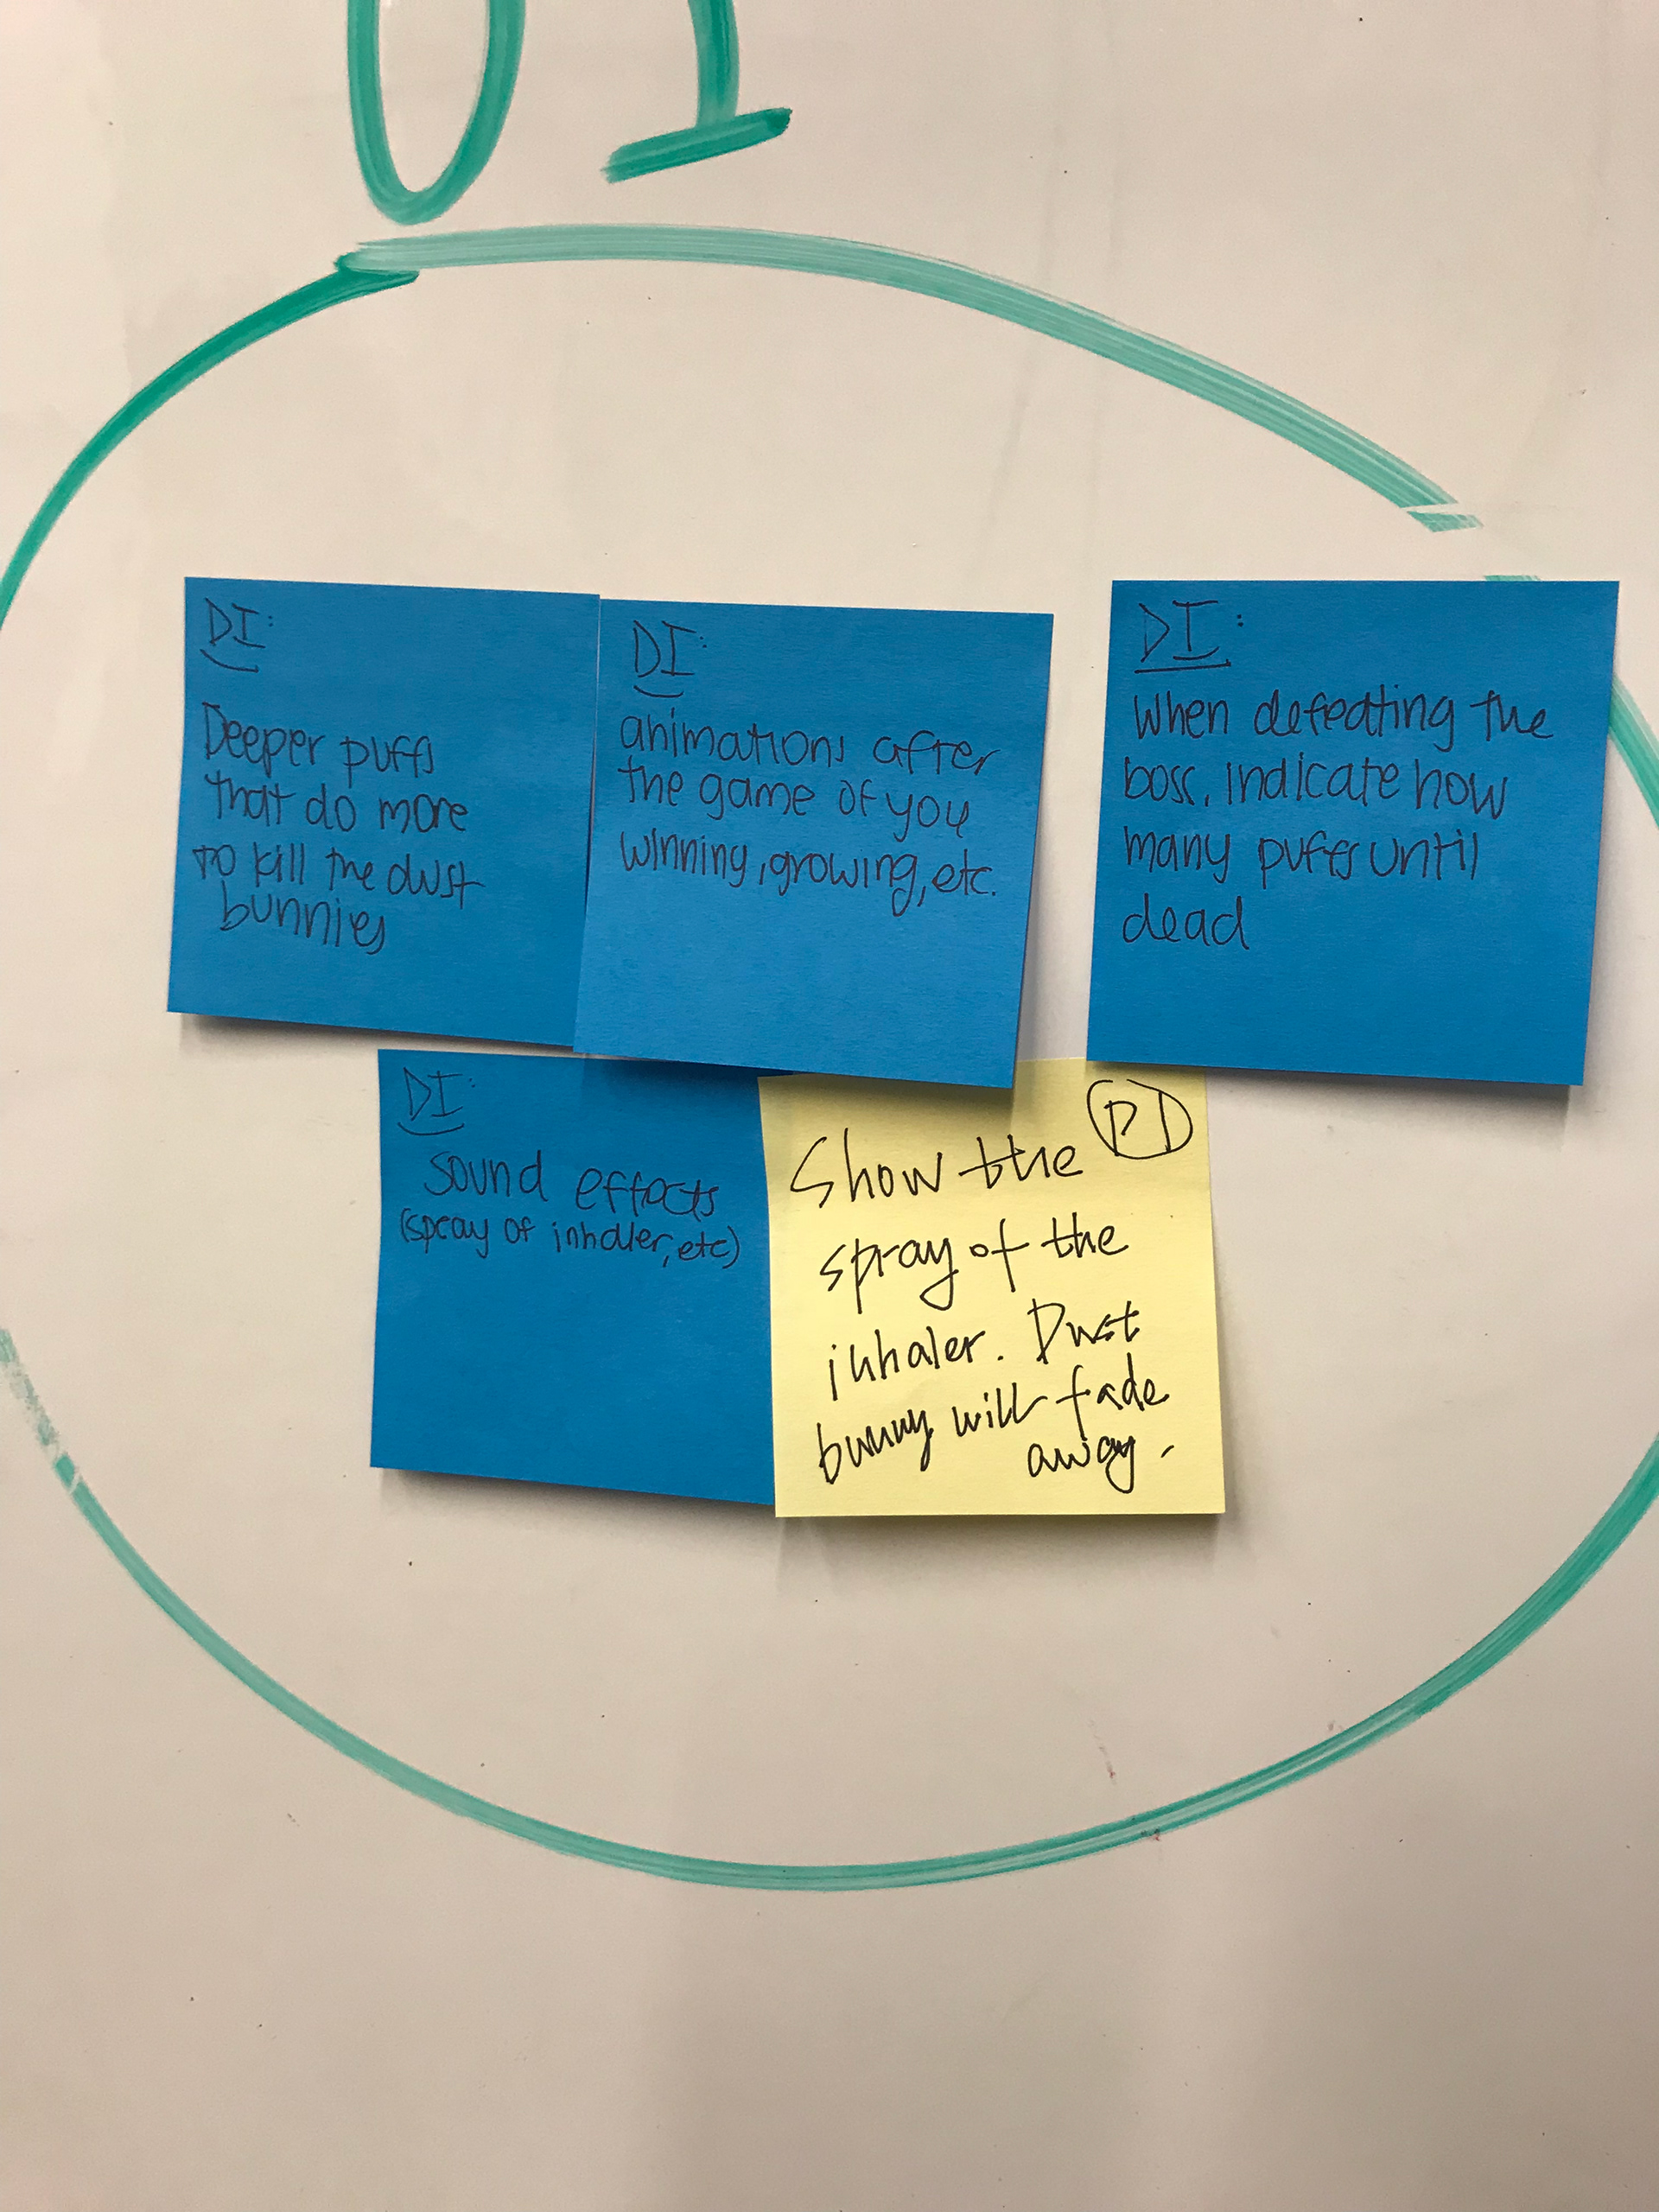 DI
DI:
Deeper puffs
that do more
to kill the dust
bunnies
DI:
animations after
the game of you
winning, growing, etc.
DI:
When defeating the
boss, indicate how
many puffs until
dead
DI:
Sound effects
(spray of inhaler, etc)
DI
Show the
spray of the
inhaler. Dust
bunny will fade
away.